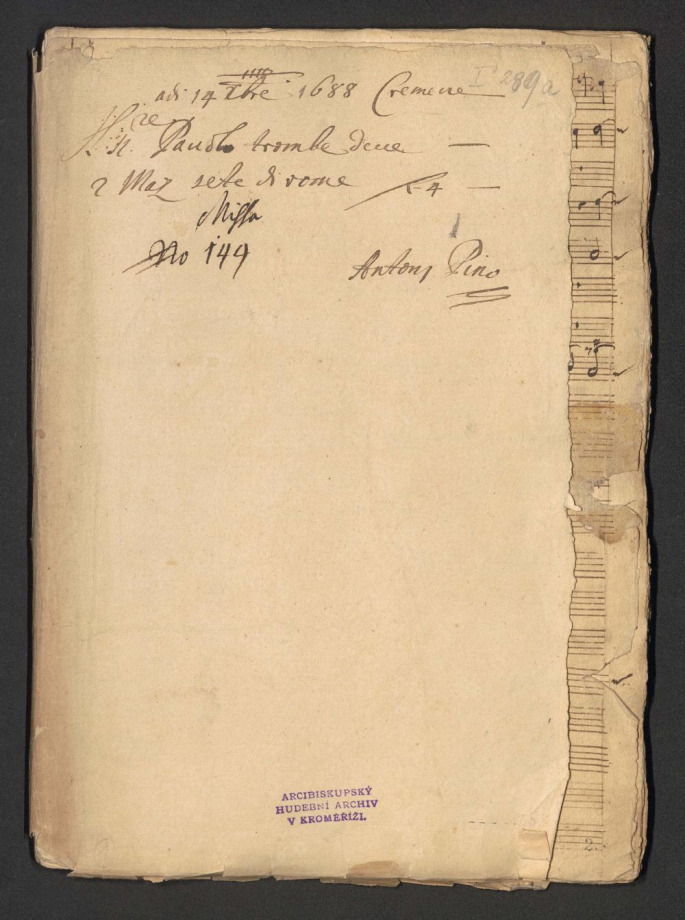 adi 14 Xbre 1688 Cremene
I 289a
Paudlo trombe Deue
2 Maz sete di rome 4
Missa
No 149
Antony Pino
ARCIBISKUPSKÝ
HUDEBNÍ ARCHIV
V KROMĚŘÍŽI.
2.